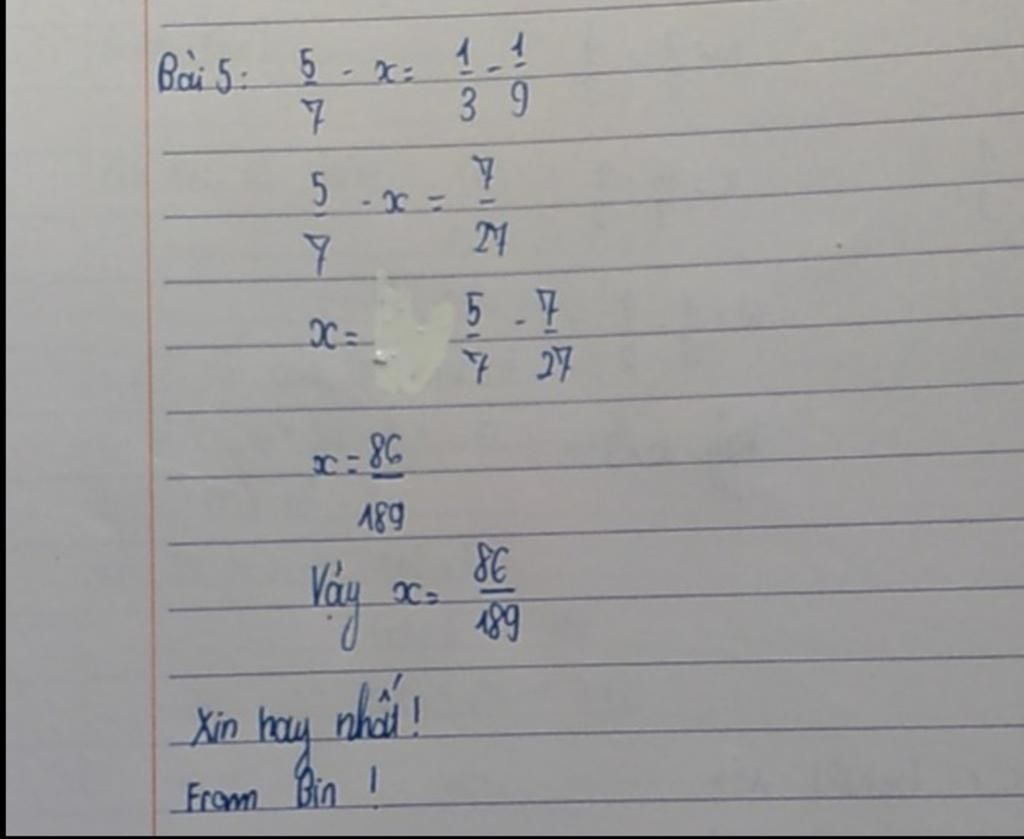 Bài 5: 5/7 - x = 1/3 - 1/9
5/7 - x = 7/27
x = 5/7 - 7/27
x = 86/189
Vậy x = 86/189
Xin hay nhất!
From Bin !